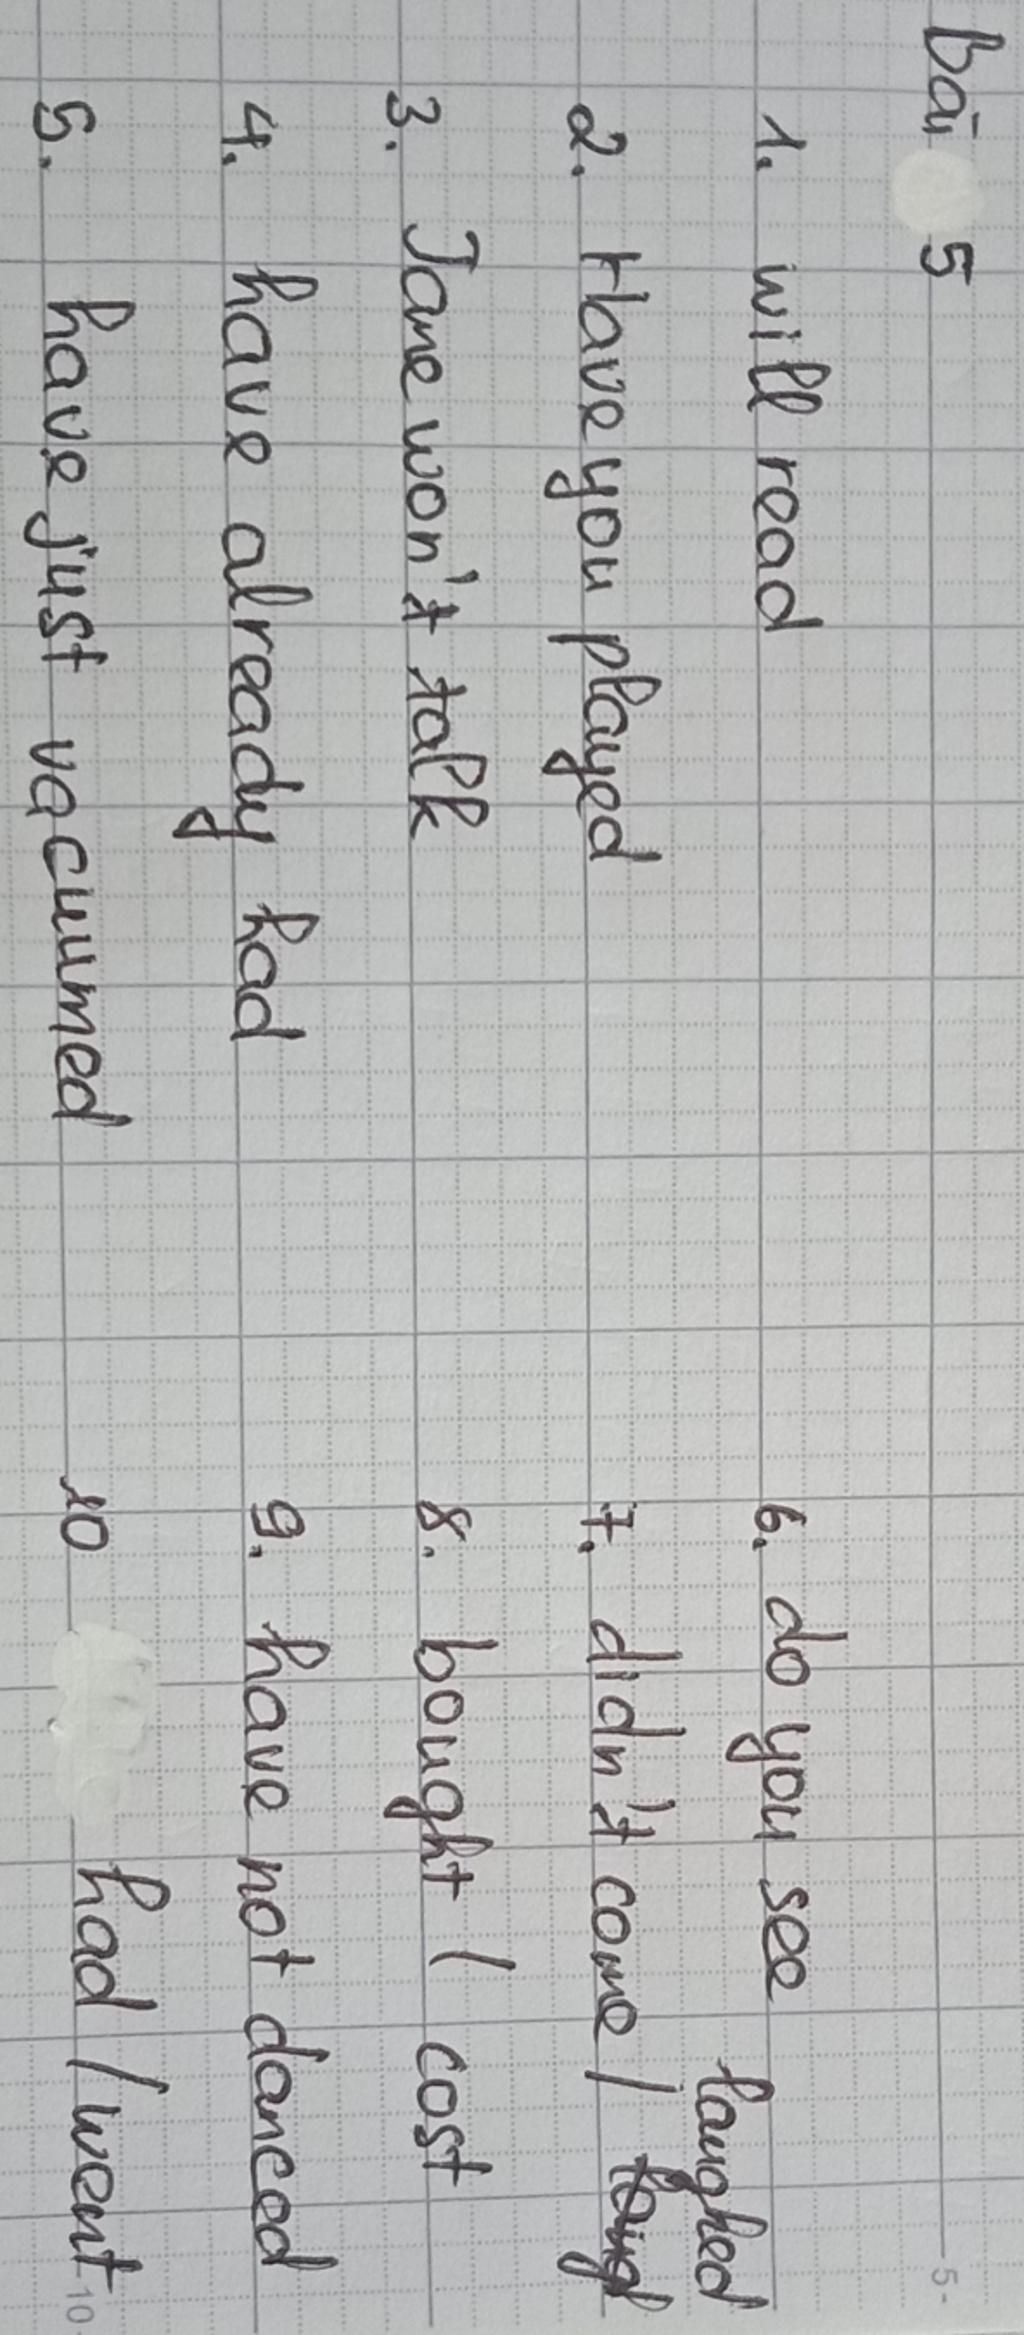 bài 5
1. will read
2. Have you played
3. Jane won't talk
4. have already had
5. have just vacummed
6. do you see
laughed
7. didn't come /
8. bought / cost
9. have not danced
10 had / went
5-
10